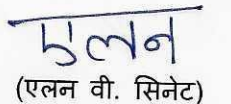 एलन
(एलन वी. सिनेट)